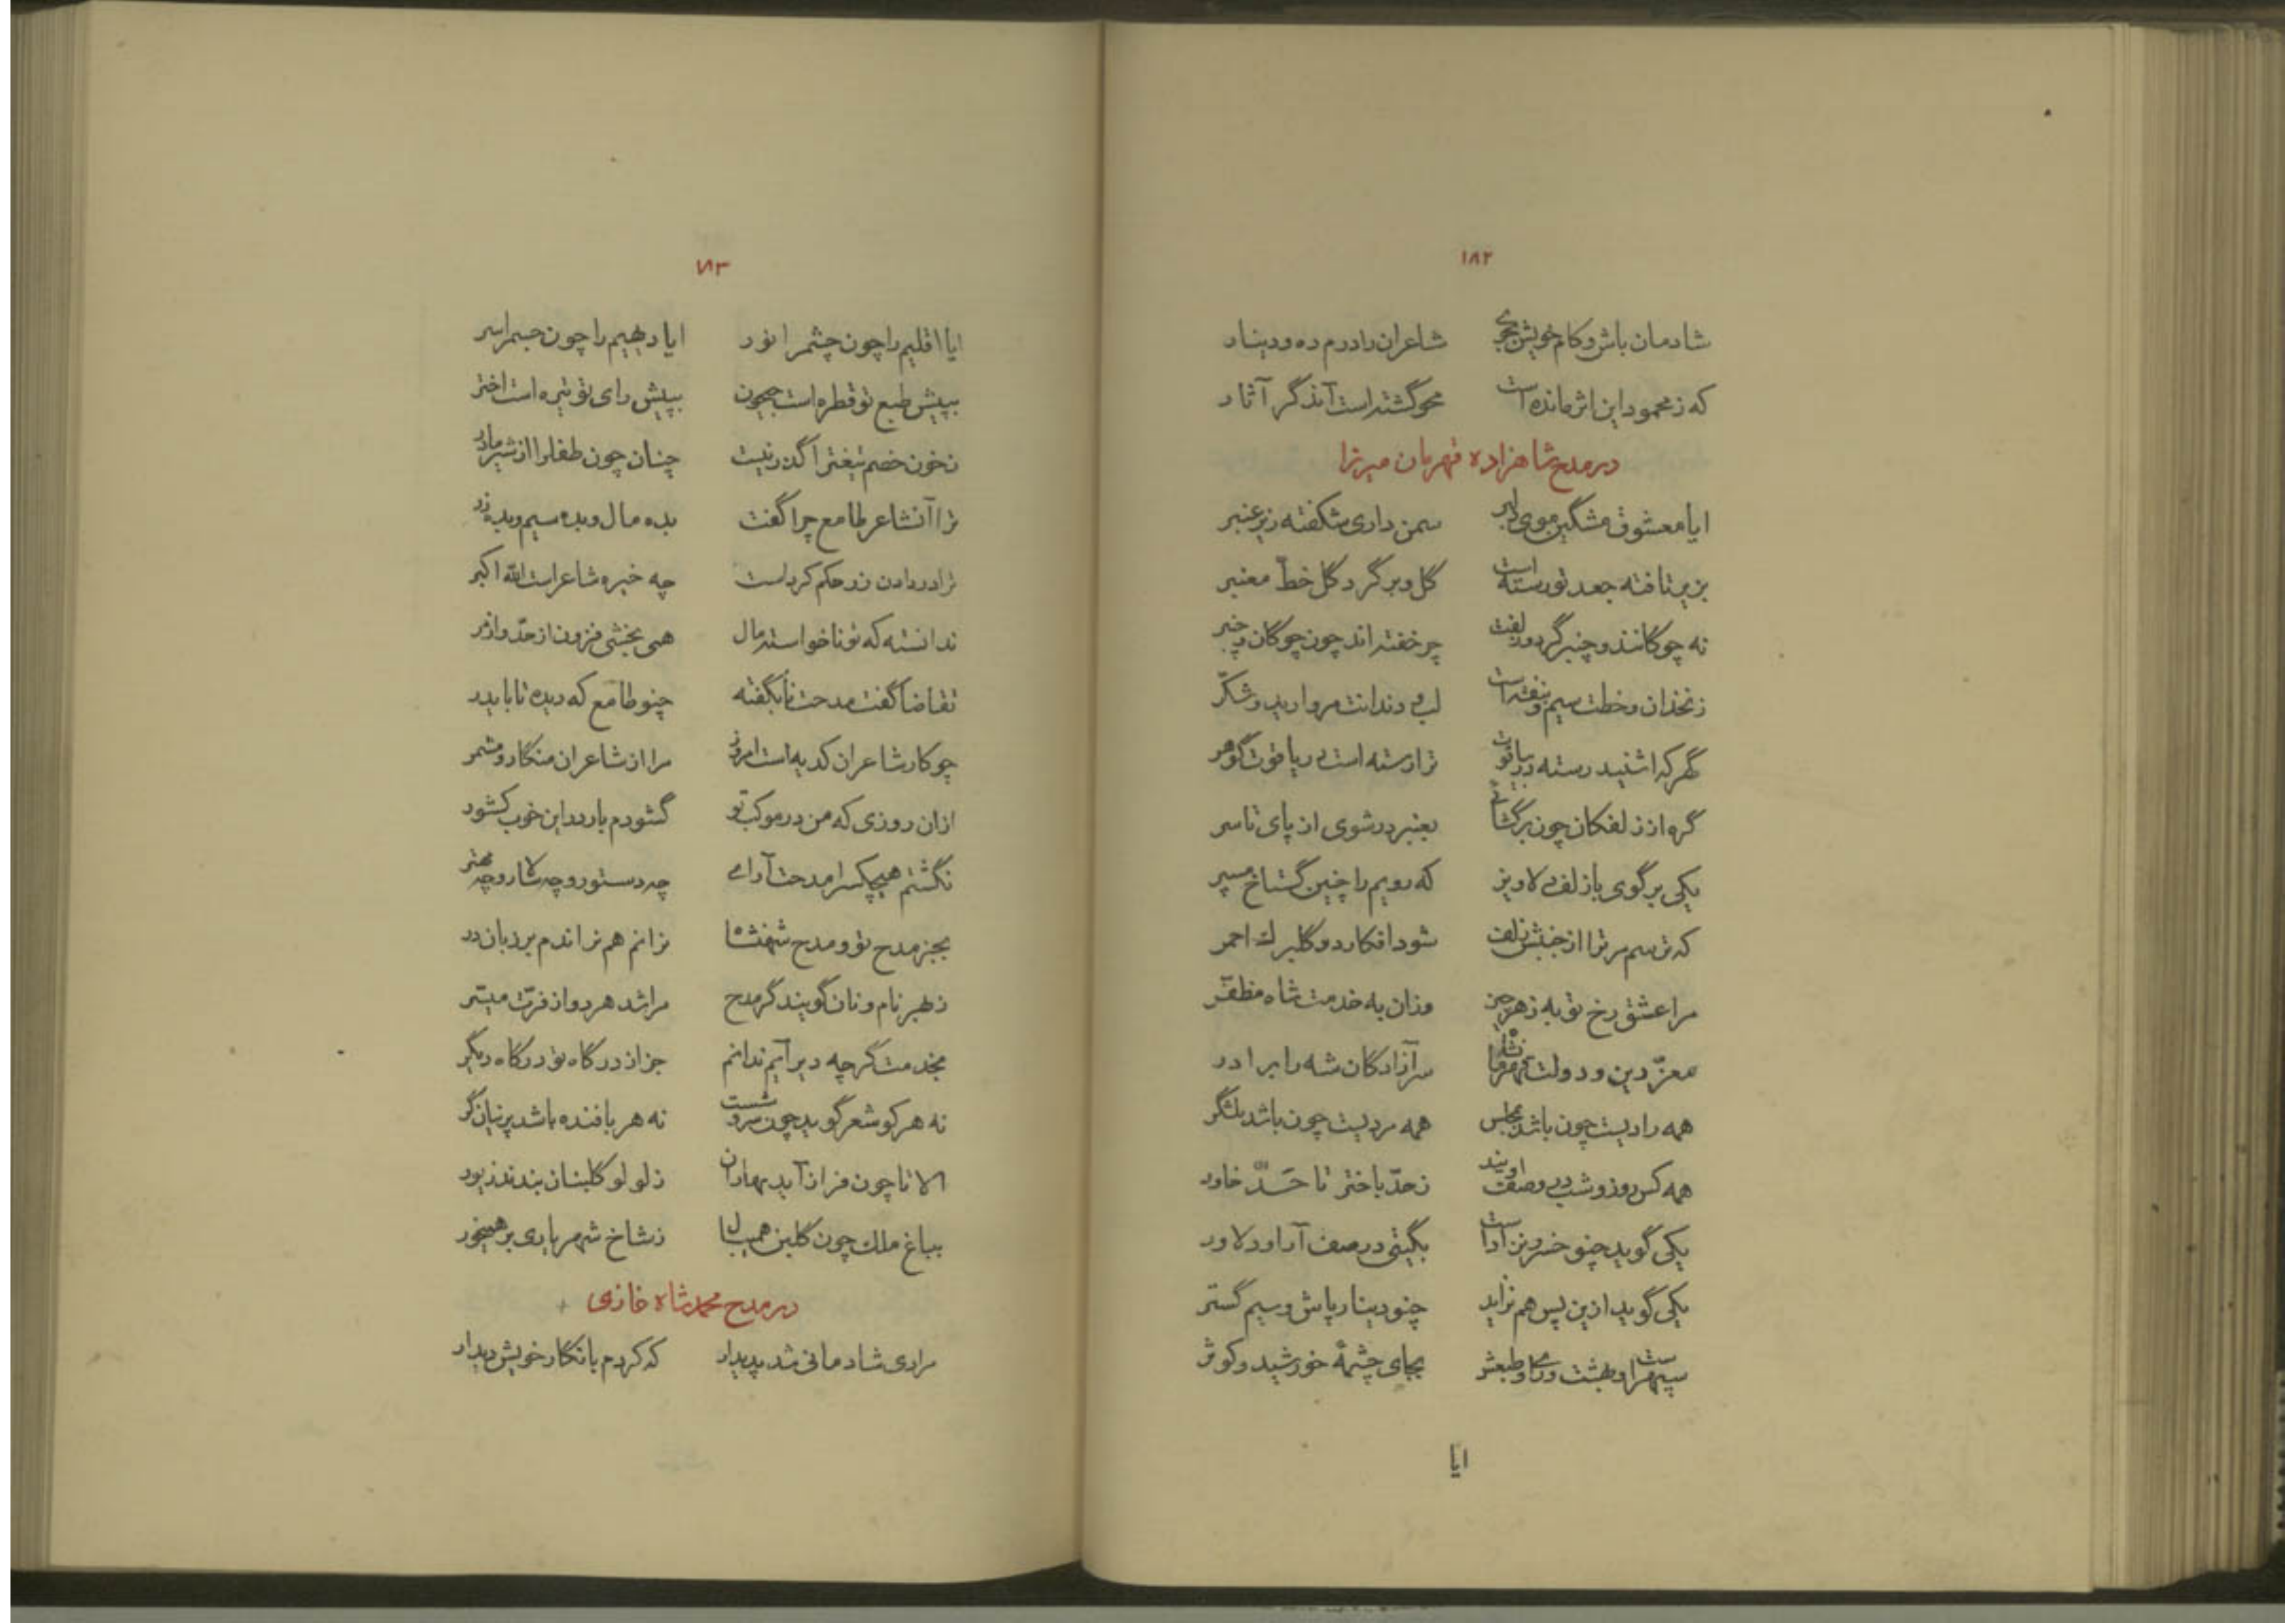 ۱۸۲
شادمان باش و کام خویش بجوی شاعران را درم ده و دینار
که ز محمود این اثر مانده است محو گشته است آن دگر آثار
در مدح شاهزاده قهرمان میرزا
ایا معشوق مشگین موی دلبر سمن داری شکفته زیر عنبر
بزیر تافته جعد تو رسته است گل و بر گرد گل خطّ معنبر
نه چوکانند و چنبر گر دو زلفت چر خفته اند چون چوکان و چنبر
زنخدان و خطت سیم و بنفشه است لب و دندانت مروارید و شکّر
گهر که اشنید رسته در یاقوت ترا رسته است در یاقوت گوهر
گره از زلفکان چون برگشائی بعنبر در شوی از پای تا سر
یکی برگوی با زلف دلاویز که رویم را چنین گستاخ مسپر
که ترسم مر ترا از جنبش زلف شود افکار دو گلبرك احمر
مرا عشق رخ تو به ز هر چیز وزان به خدمت شاه مظفّر
معزّ دین و دولت قهرمانشاه سر آزادکان شه را برادر
همه رادیست چون باشد بمجلس همه مردیست چون باشد بلشگر
همه کس روز و شب در وصف اویند ز حدّ باختر تا حَدّ خاور
یکی گوید چنو خسرو نزاد است بگیتی در صف آرا و دلاور
یکی گوید ازین پس هم نزاید چنو دینار پاش و سیم گستر
سپهر است و بهشت و رای و طبعش بجای چشمهٔ خورشید و کوثر
ایا
۱۸۳
ایا اقلیم را چون چشم را نور ایا دیهیم را چون جسم را سر
بپیش طبع تو قطره است جیحون بپیش رای تو تیره است اختر
ز خون خصم تیغترا گذر نیست چنان چون طفل را از شیر مادر
ترا آن شاعر طامع چرا گفت بده مال و بده سیم و بده زر
ترا در دادن زر حکم کرد است چه خیره شاعر است الله اکبر
ندانسته که تو ناخواسته مال همی بخشی فزون از حدّ و از مر
تقاضا گفت مدحت نابگفته چنو طامع که دیده تا باید در
چو کار شاعران کدیه است امروز مرا از شاعران منگار و مشمر
ازان روزی که من در موکب تو گشودم بار در این خوب کشور
نگشتم هیچکس را مدحت آرای چه دستور و چه سالار و چه مهتر
بجز مدح تو و مدح شهنشاه نرانم هم نراندم بر زبان در
ز بهر نام و نان گویند گر مدح مرا شد هر دو از فرّت میسّر
بخدمت گر چه دیر آیم ندانم جز از درگاه تو درگاه دیگر
نه هر کو شعر گوید چون سروشست نه هر بافنده باشد پرنیان گر
الا تا چون فراز آید بهاران ز لولو گلبنان بندند زیور
بباغ ملك چون گلبن همی بال ز شاخ شهریاری بر همیخور
در مدح محمد شاه غازی
مرا دی شادمانی شد پدیدار که کردم با نگار خویش دیدار